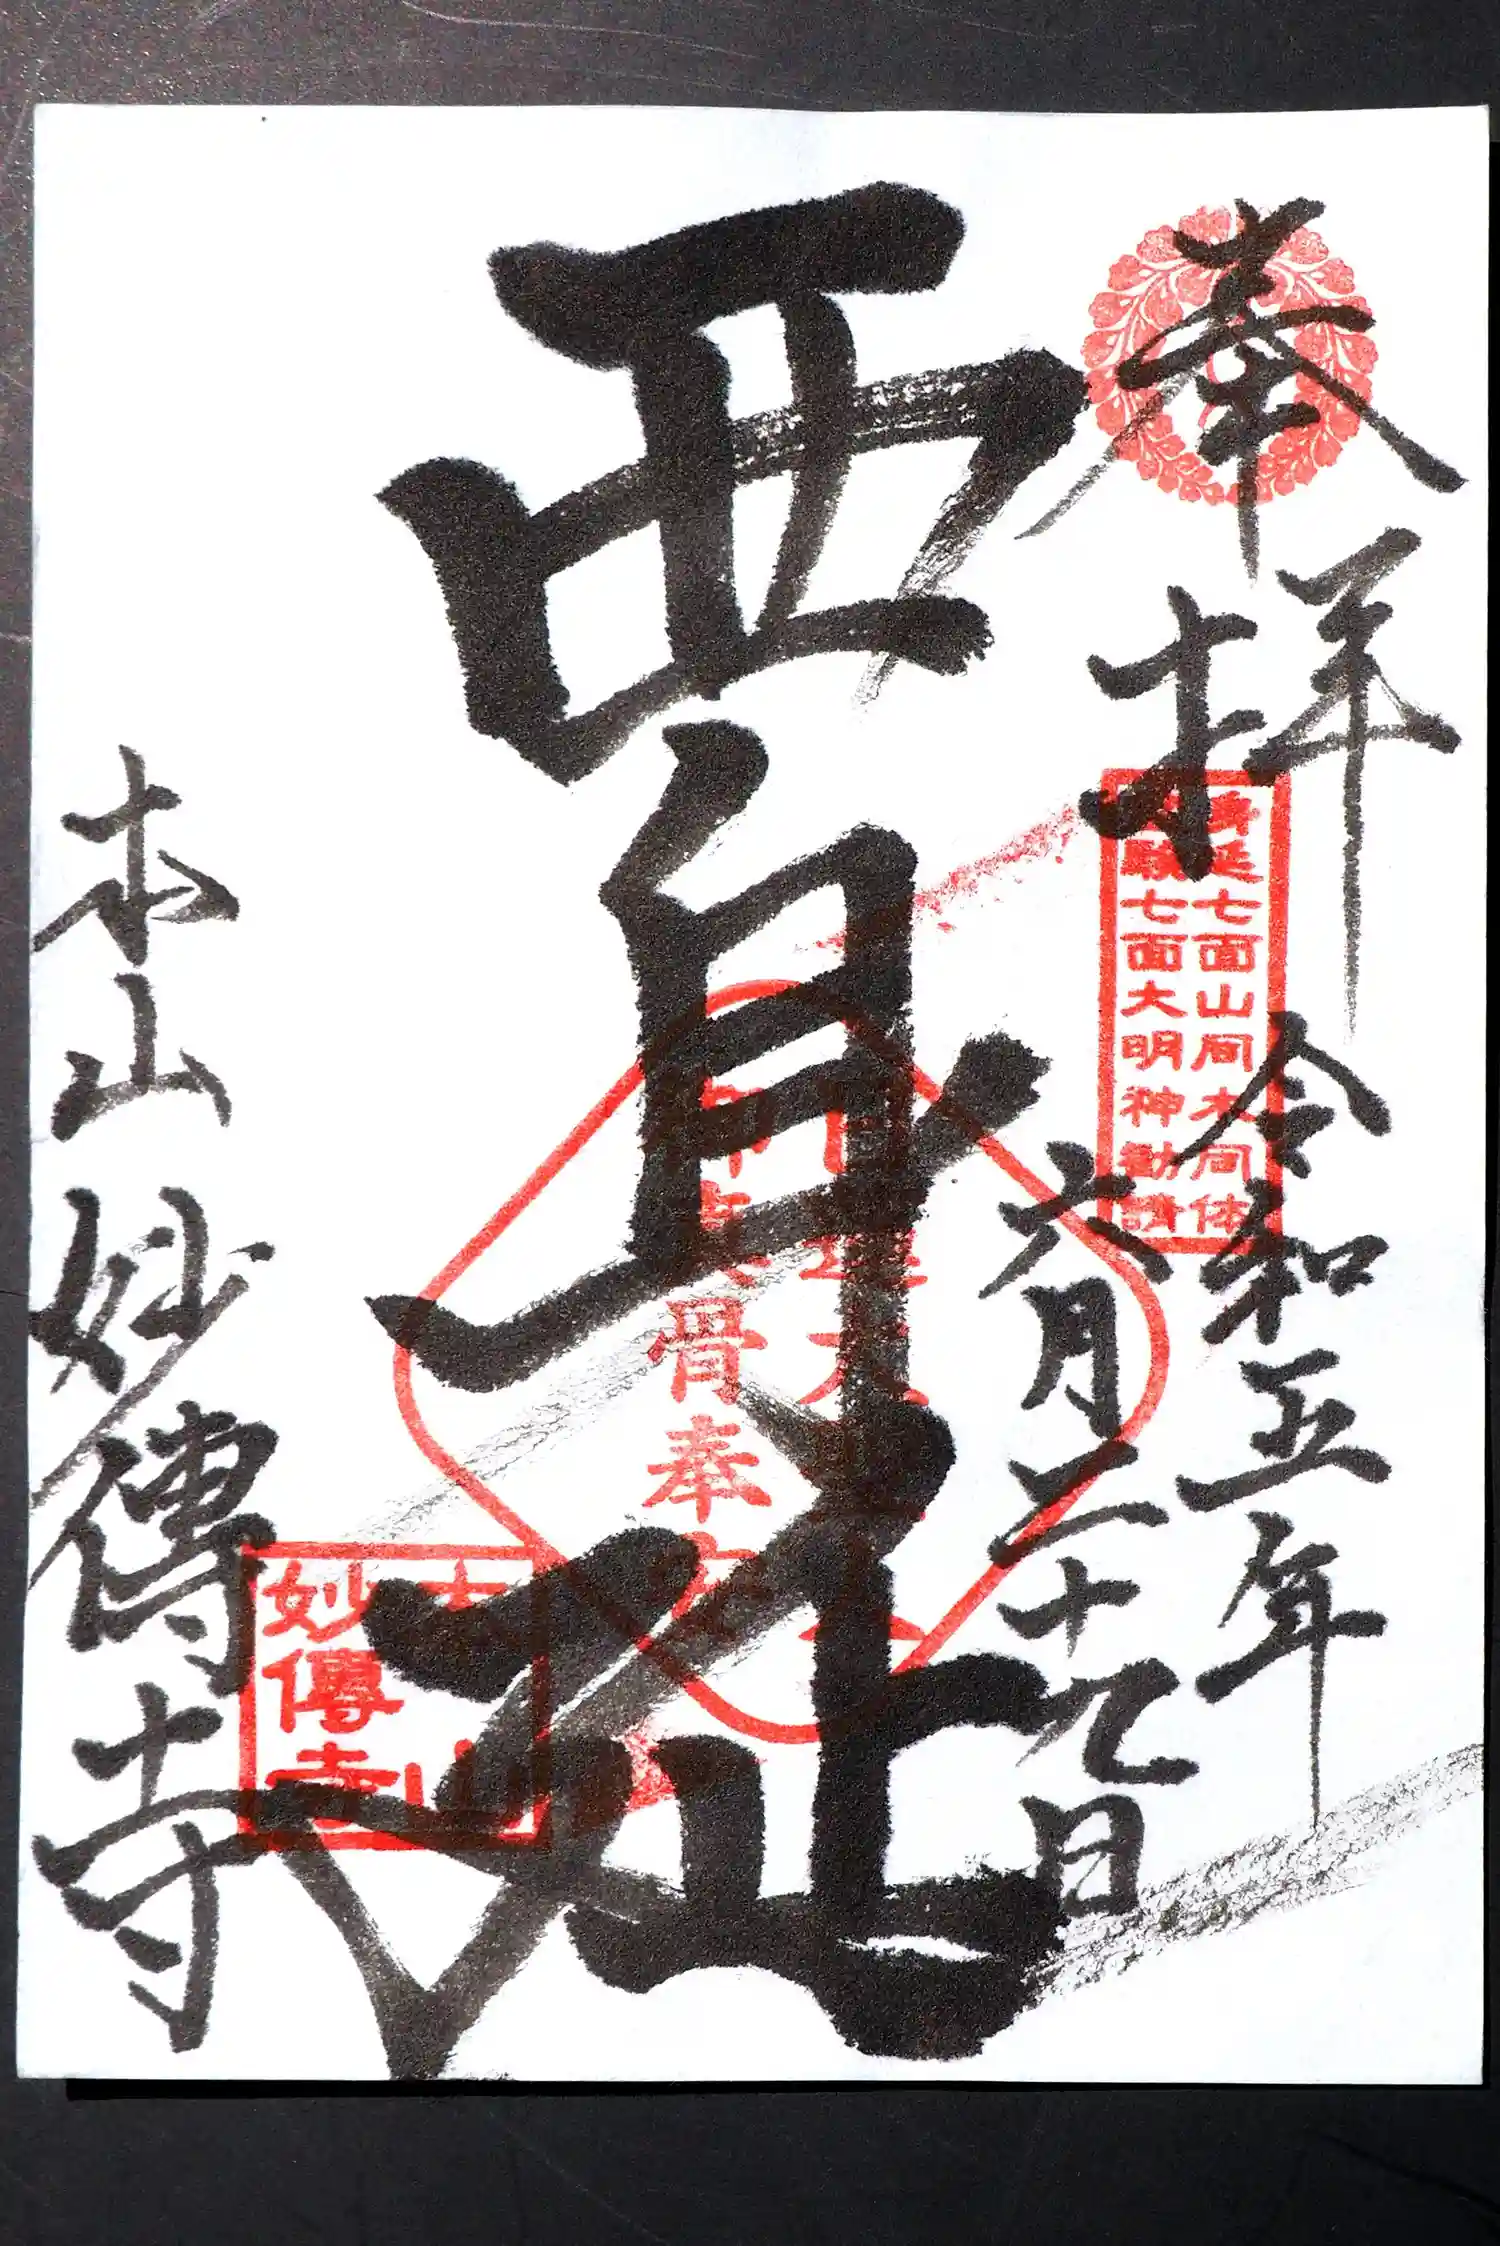 奉拝
令和五年
六月二十九日
身延七面山同木同体
験七面大明神勧請
西身延
骨奉
本山妙傳寺
山
妙傳寺